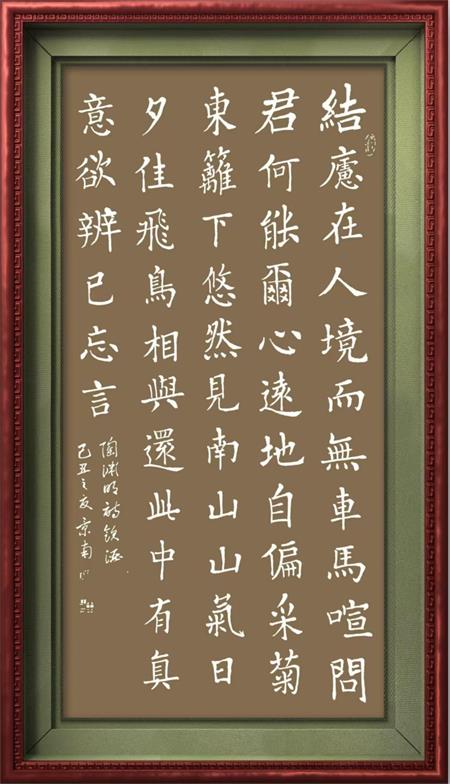 結慮在人境而無車馬喧問
君何能爾心遠地自偏采菊
東籬下悠然見南山山氣日
夕佳飛鳥相與還此中有真
意欲辨已忘言
陶淵明詩飲酒
己丑之夏京南